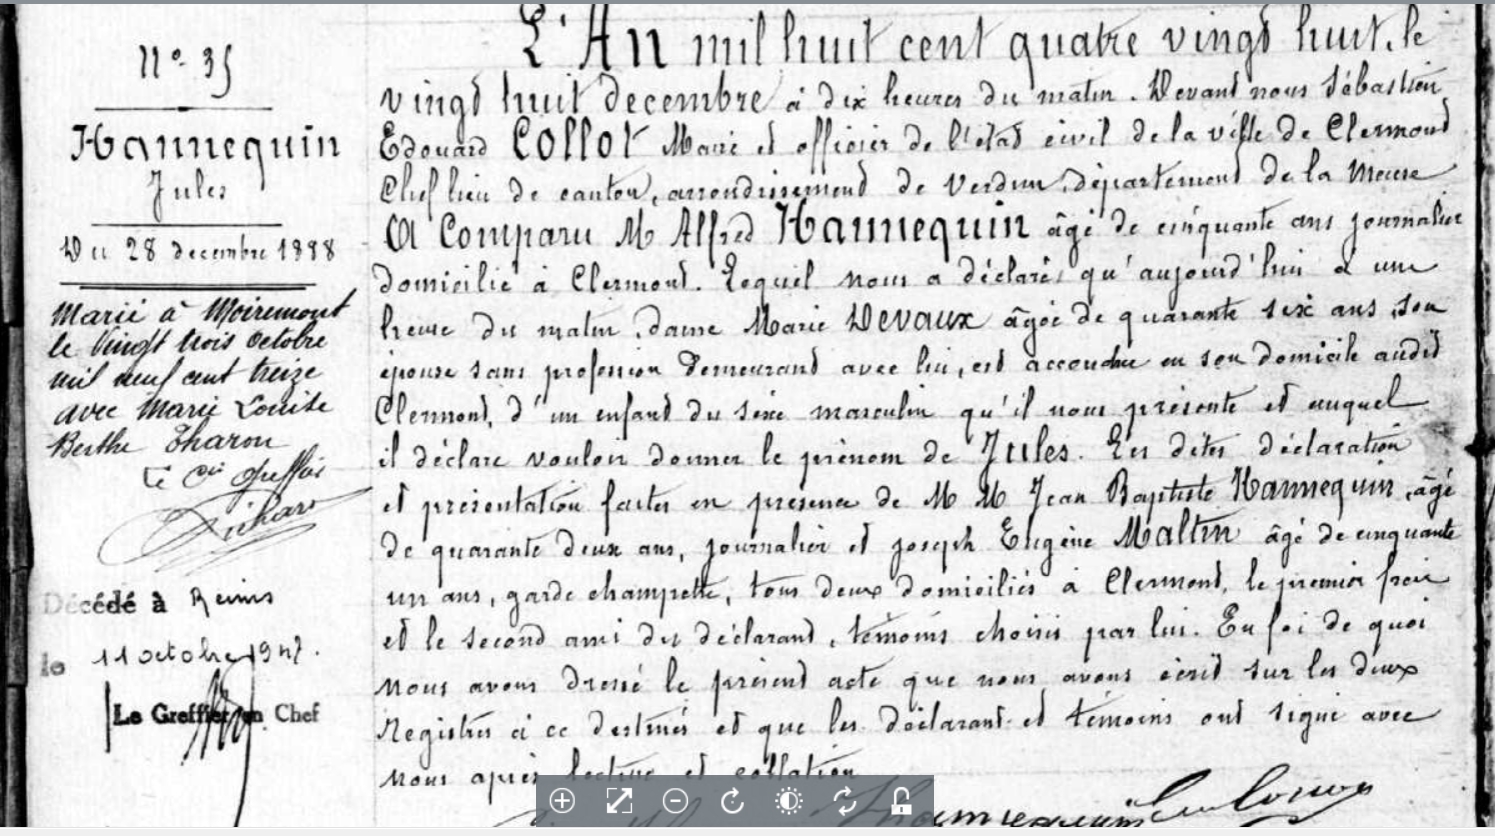 N° 35
Hannequin
Jules
Du 28 decembre 1888
Marié à Moiremont
le Vingt trois Octobre
mil neuf cent treize
avec Marie Louise
Berthe Tharon
Le Cis Greffier
Décédé à Reims
le 11 octobre 1947.
Le Greffier en Chef
L'An mil huit cent quatre vingt huit, le
vingt huit decembre à dix heures du matin. Devant nous Sébastien
Edouard Collot Maire et officier de l'état civil de la ville de Clermont
Chef lieu de canton, arrondissement de Verdun département de la Meuse
A Comparu M Alfred Hannequin âgé de cinquante ans journalier
domicilié à Clermont. Lequel nous a déclaré qu'aujourd'hui à une
heure du matin, dame Marie Devaux âgée de quarante six ans, son
épouse sans profession demeurant avec lui, est accouchée en son domicile audit
Clermont, d'un enfant du sexe masculin qu'il nous présente et auquel
il déclare vouloir donner le prénom de Jules. Les dites déclaration
et présentation faites en présence de M M Jean Baptiste Hannequin, âgé
de quarante deux ans, journalier et Joseph Eugène Maltin âgé de cinquante
un ans, garde champette, tous deux domiciliés à Clermont, le premier frère
et le second ami du déclarant, témoins choisis par lui. En foi de quoi
nous avons dressé le présent acte que nous avons écrit sur les deux
Registres à ce destinés et que les déclarant et témoins ont signé avec
nous après lecture et collation
Hannequin